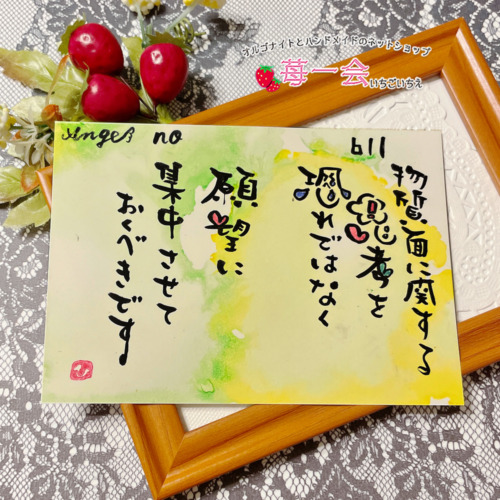 オルゴナイトとハンドメイドのネットショップ
苺一会
いちごいちえ
Angel no 611
物質面に関する
思考を
恐れではなく
願望に
集中させて
おくべきです